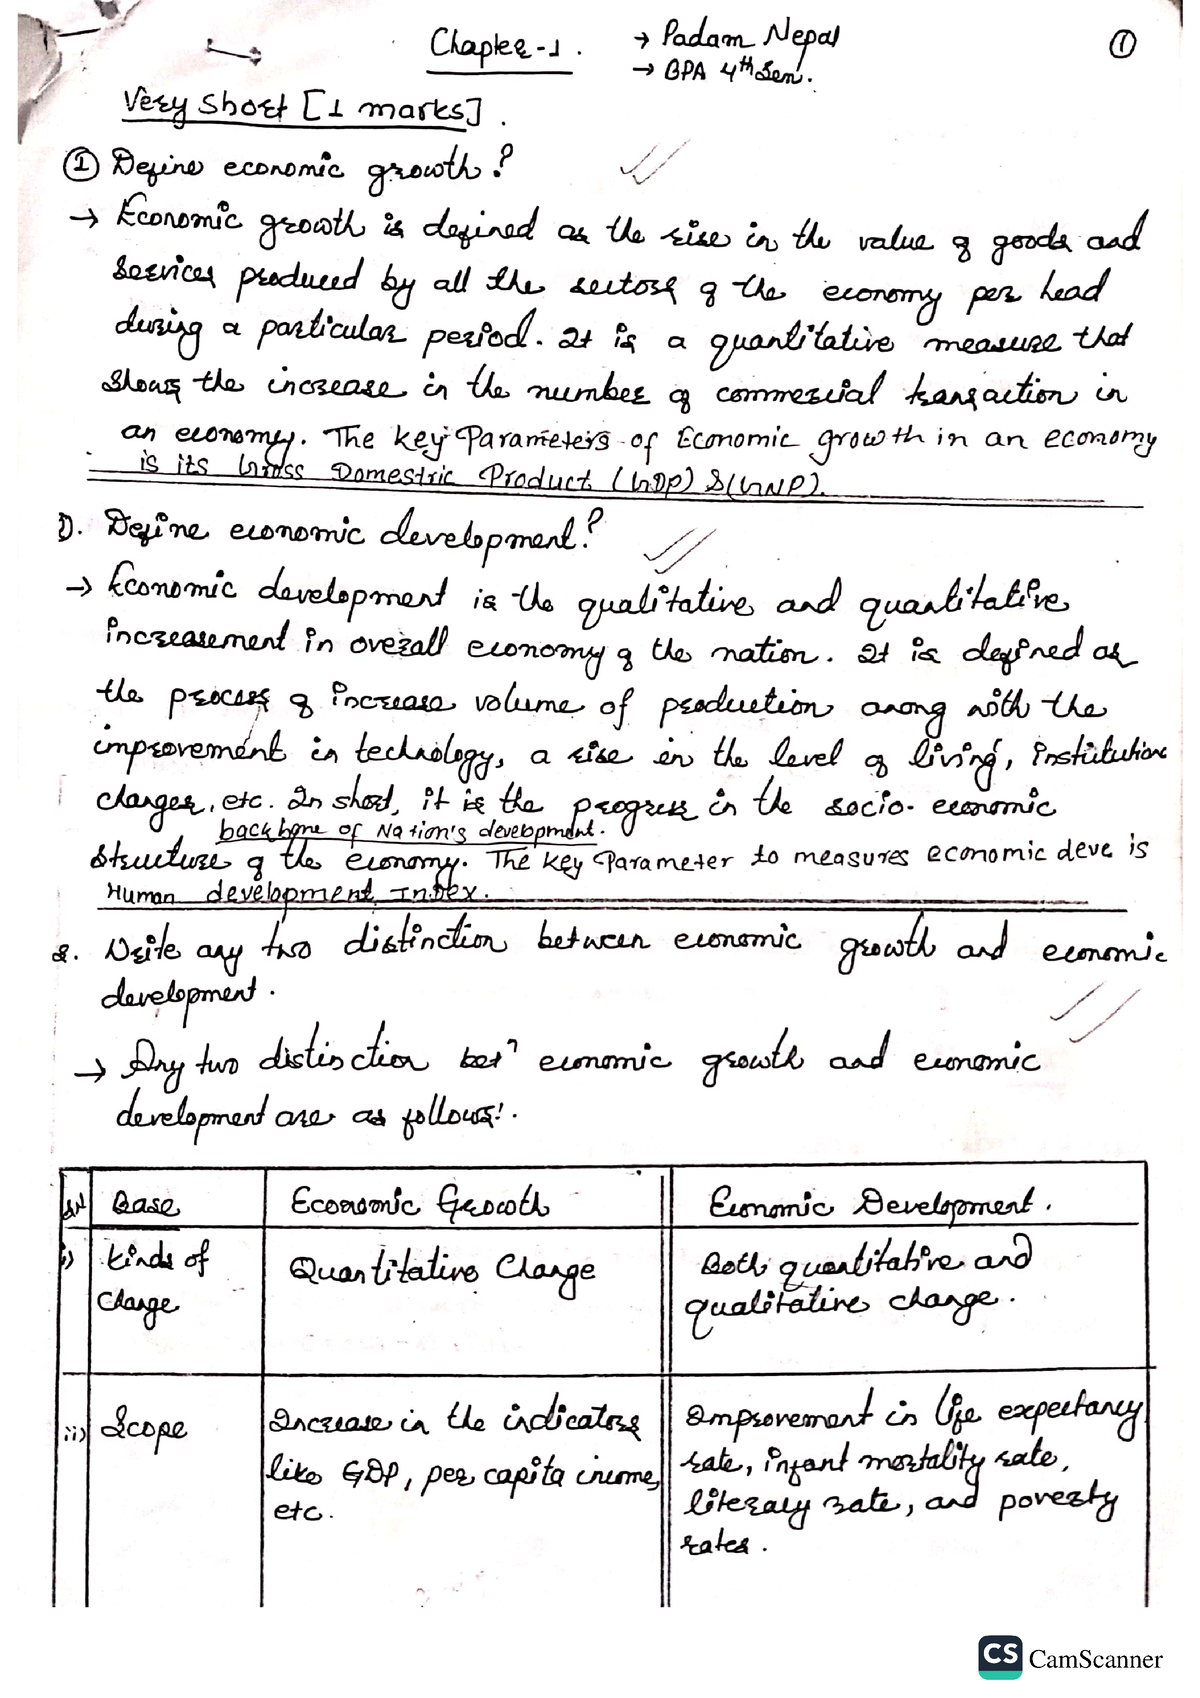 Chapter-1.
→ Padam Nepal
①
→ BPA 4th Sem.
Very short [1 marks].
① Define economic growth?
→ Economic growth is defined as the rise in the value of goods and
services produced by all the sectors of the economy per head
during a particular period. It is a quantitative measure that
shows the increase in the number of commercial transaction in
an economy. The key Parameters of Economic growth in an economy
is its Gross Domestric Product (GDP) & (GNP).
D. Define economic development?
→ Economic development is the qualitative and quantitative
increasement in overall economy of the nation. It is defined as
the process of increase volume of production arong with the
improvement in technology, a rise in the level of living, institution
changes, etc. In short, it is the progress in the socio-economic
backbone of Nation's development.
structure of the economy. The key Parameter to measures economic deve is
Human development Index.
2. Write any two distinction between economic growth and economic
development.
→ Any two distinction betn economic growth and economic
development are as follows:.
SN Base Economic Growth Economic Development.
i) Kinds of Quantitative Change Both quantitative and
change qualitative change.
ii) Scope Increase in the indicators Improvement in life expectancy
like GDP, per capita income, rate, infant mortality rate,
etc. literacy rate, and poverty
rates.
CS CamScanner